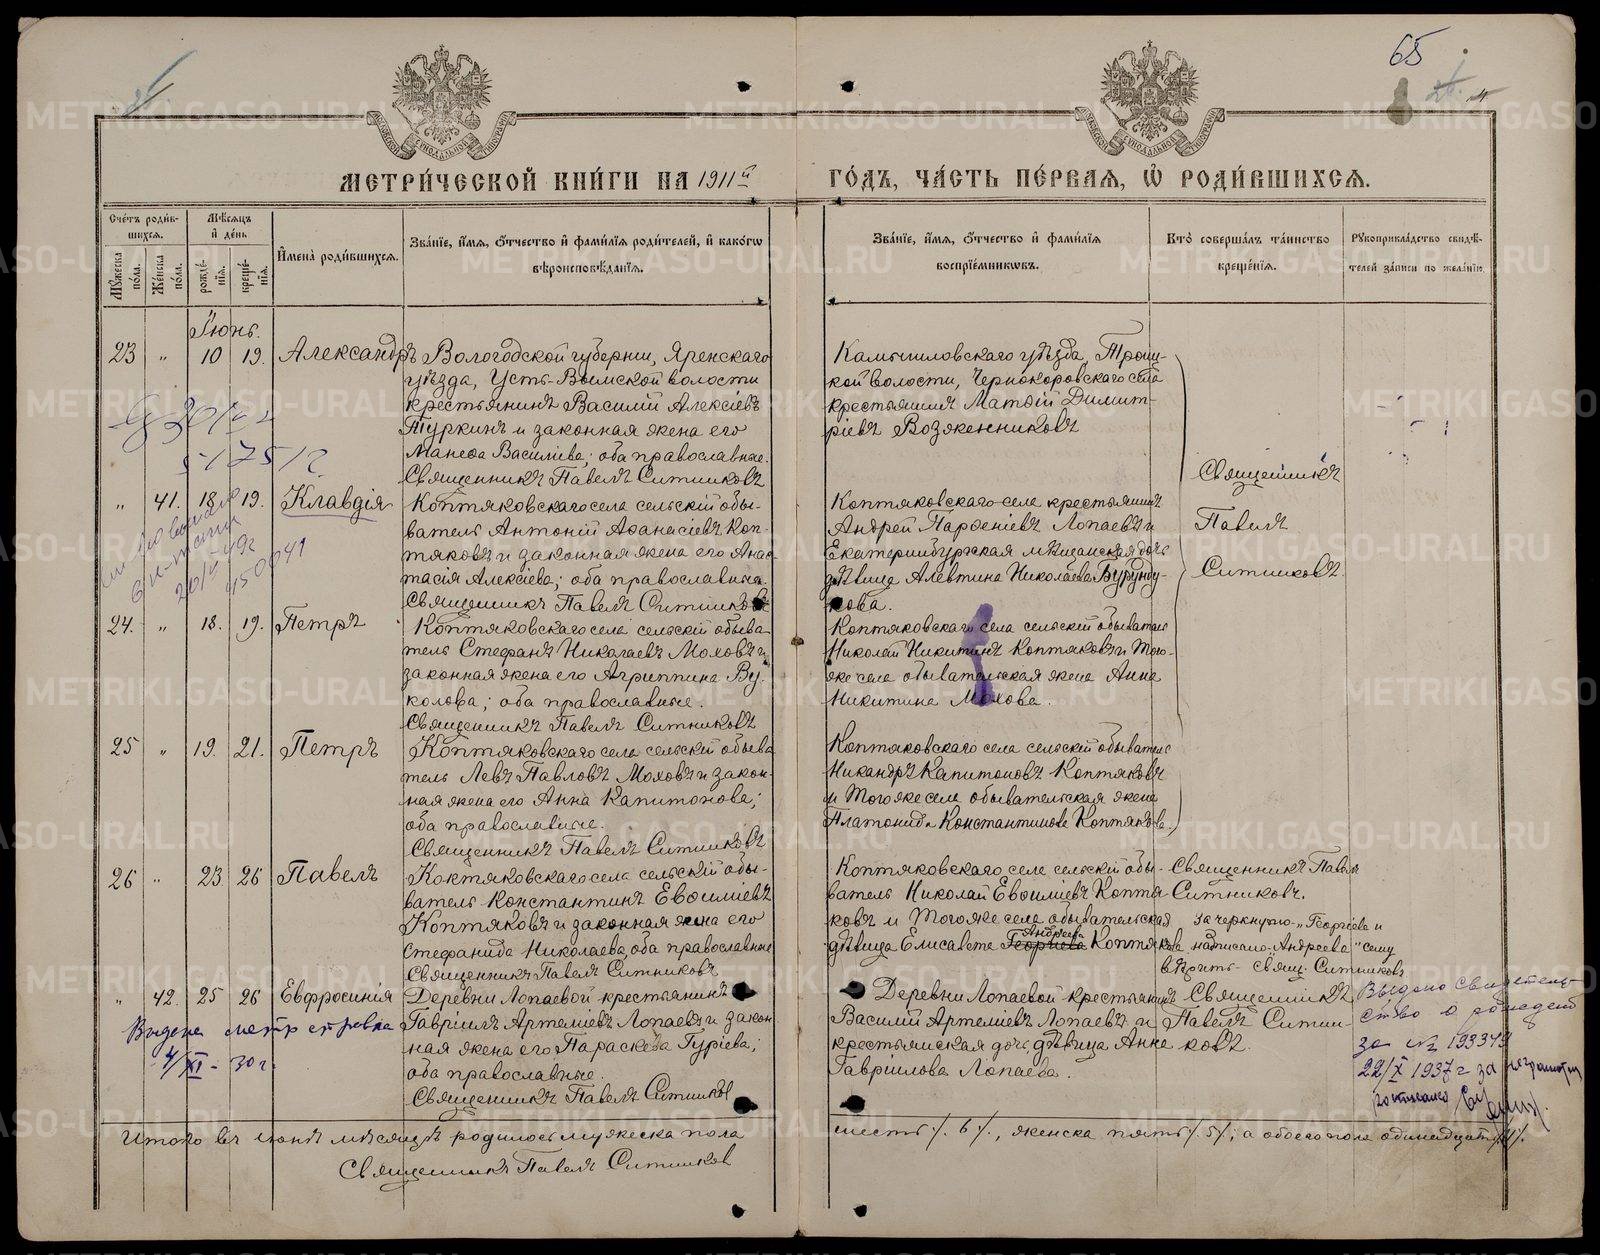 65
МЕТРИ́ЧЕСКОЙ КНИ́ГИ НА 1911й ГО́ДЪ, ЧА́СТЬ ПЕ́РВАЯ, Ѡ҆ РОДИ́ВШИХСЯ.
Сче́тъ роди́вшихся.
Мѣ́сяцъ и҆ де́нь
Мꙋ́жеска по́ла.
Же́нска по́ла.
рожде́нїѧ.
креще́нїѧ.
И҆мена̀ роди́вшихсѧ.
Зва́нїе, и҆́мѧ, ѻ҆́тчество и҆ фами́лїѧ роди́телей, и҆ како́гѡ вѣроисповѣ́данїѧ.
Зва́нїе, и҆́мѧ, ѻ҆́тчество и҆ фами́лїѧ воспрїе́мникѡвъ.
Кто̀ соверша́лъ та́инство креще́нїѧ.
Рꙋкоприкла́дство свидѣ́телей за́писи по жела́нїю.
Іюнь.
23 „ 10 19. Александръ
Вологодской губерніи, Яренскаго
уѣзда, Усть-Вымской волости
крестьянинъ Василій Алексіевъ
Туркинъ и законная жена его
Манефа Василіева; оба православные.
Священникъ Павелъ Ситниковъ
Камышловскаго уѣзда, Троиц-
кой волости, Чернокоровскаго села
крестьянинъ Матѳій Димит-
ріевъ Возженниковъ
Священникъ
Павелъ
Ситниковъ.
„ 41. 18 19. Клавдія
Коптяковскаго села сельскій обы-
ватель Антоній Аѳанасіевъ Коп-
тяковъ и законная жена его Анас-
тасія Алексіева; оба православные.
Священникъ Павелъ Ситниковъ
Коптяковскаго села крестьянинъ
Андрей Парѳеніевъ Лопаевъ и
Екатеринбургская мѣщанская дочь
дѣвица Алевтина Николаева Бурунду-
кова.
24. „ 18. 19. Петръ
Коптяковскаго села сельскій обыва-
тель Стефанъ Николаевъ Моховъ и
законная жена его Агриппина Ву-
колова; оба православные.
Священникъ Павелъ Ситниковъ
Коптяковскаго села сельскій обыватель
Николай Никитинъ Коптяковъ и того-
же села обывательская жена Анна
Никитина Мохова.
25 „ 19. 21. Петръ
Коптяковскаго села сельскій обыва-
тель Левъ Павловъ Моховъ и закон-
ная жена его Анна Капитонова;
оба православные.
Священникъ Павелъ Ситниковъ
Коптяковскаго села сельскій обыватель
Никандръ Капитоновъ Коптяковъ
и того же села обывательская жена
Платонида Константинова Коптякова.
26 „ 23 26 Павелъ
Коптяковскаго села сельскій обы-
ватель Константинъ Евѳиміевъ
Коптяковъ и законная жена его
Стефанида Николаева, оба православные
Священникъ Павелъ Ситниковъ
Коптяковскаго села сельскій обы-
ватель Николай Евѳиміевъ Коптя-
ковъ и того же села обывательская
дѣвица Елисавета Георгіева Андреева Коптякова
Священникъ Павелъ
Ситниковъ.
зачеркнуто „Георгіева и
надписано „Андреева" сему
вѣрить свящ. Ситниковъ
„ 42. 25 26 Евфросинія
Деревни Лопаевой крестьянинъ
Гавріилъ Артеміевъ Лопаевъ и закон-
ная жена его Параскева Гуріева;
оба православные.
Священникъ Павелъ Ситниковъ
Деревни Лопаевой крестьянинъ
Василій Артеміевъ Лопаевъ и
крестьянская дочь дѣвица Анна
Гавріилова Лопаева.
Священникъ
Павелъ Ситни-
ковъ.
Выдано свидетель-
ство о рожден
за № 193349
22/X 1937 г за
Выдана метр справка
4/XI - 30 г.
Итого въ іюнѣ мѣсяцѣ родилось мужеска пола шесть /. 6 /., женска пять /. 5 /.; а обоего пола одинадцать /. 11 /.
Священникъ Павелъ Ситниковъ
METRIKI.GASO-URAL.RU